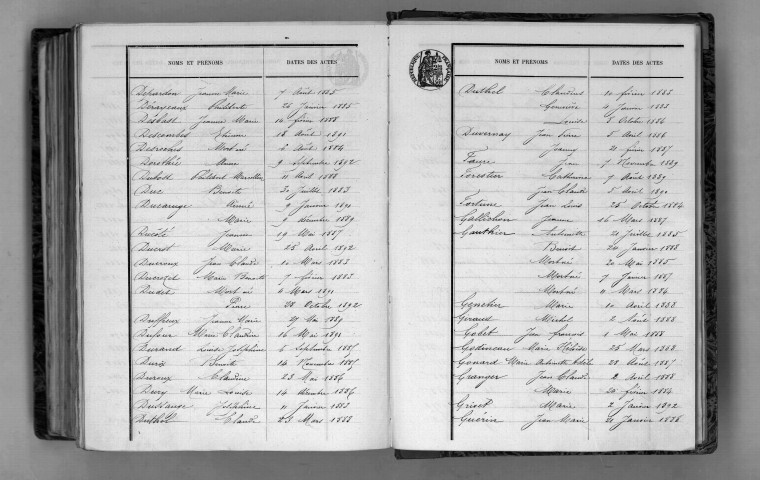 NOMS ET PRÉNOMS DATES DES ACTES
Depardon Jeanne Marie 7 Août 1885
Philibert 26 Janvier 1885
Jeanne Marie 14 février 1888
Descombes Etienne 18 Août 1891
4 Août 1884
Dorothée Anne 9 Septembre 1892
Dubost Philibert 11 Avril 1888
Duc Benoite 30 Juillet 1883
Ducarouge Aimée 9 Janvier 1890
Marie 9 décembre 1889
Jeanne 19 Mai 1887
Ducrot Marie 25 Avril 1892
Ducroux Jean Claude 10 Mars 1883
Marie Benoite 7 février 1883
4 Mars 1891
Pierre 28 Octobre 1892
Jeanne Marie
Dufour Marie Claudine 16 Mai 1890
Durand Louise Joséphine 6 Septembre 1887
Duris Benoite 14 Novembre 1887
Claudine 23 Mai 1886
Dury Marie Louise 14 décembre 1886
Joséphine 11 Janvier 1883
Duthel Claude 23 Mars 1888
NOMS ET PRÉNOMS DATES DES ACTES
Duthel Claudius 10 février 1883
4 Janvier 1883
Louise 5 Octobre 1886
Duvernay Jean Pierre 5 Avril 1886
Jeanny 21 février 1887
Favre Jean 7 Novembre 1889
Forestier Catherine 7 Août 1889
Jean Claude 5 Avril 1890
Fortune Jean Louis 25 Octobre 1884
Gallichon Jeanne 16 Mars 1887
Gauthier Antoinette 21 Juillet 1885
Benoit 20 Janvier 1888
Mort-né 20 Mai 1885
Mort-né 7 Janvier 1887
Mort-né 11 Mars 1886
Marie 10 Avril 1883
Giraud Michel 2 Août 1888
Gobet Jean François 1 Mai 1888
Godineau Marie 25 Mars 1883
Gonard Marie Antoinette 28 Août 1887
Granger Jean Claude 2 Avril 1888
Marie 20 février 1884
Grivet Marie 2 Janvier 1892
Guérin Jean Marie 21 Janvier 1886